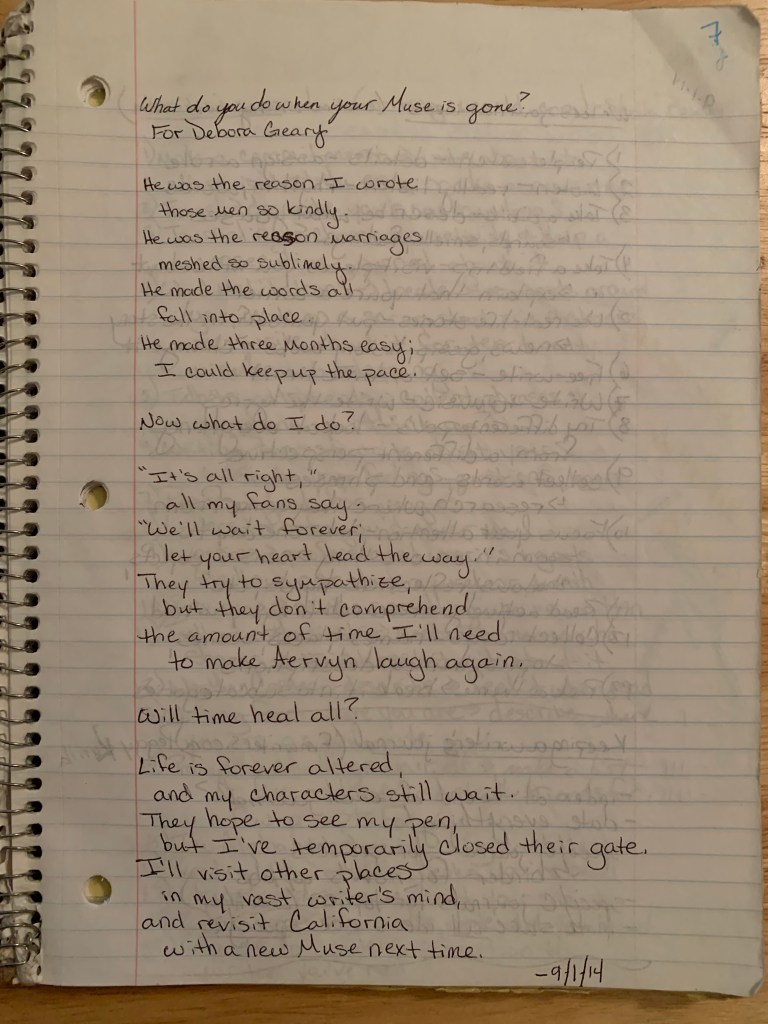 7
What do you do when your Muse is gone?
For Debora Geary
He was the reason I wrote
those men so kindly.
He was the reason marriages
meshed so sublimely.
He made the words all
fall into place.
He made three months easy;
I could keep up the pace.
Now what do I do?
"It's all right,"
all my fans say.
"We'll wait forever;
let your heart lead the way."
They try to sympathize,
but they don't comprehend
the amount of time I'll need
to make Aervyn laugh again.
Will time heal all?
Life is forever altered,
and my characters still wait.
They hope to see my pen,
but I've temporarily closed their gate.
I'll visit other places
in my vast writer's mind,
and revisit California
with a new Muse next time.
-9/1/14